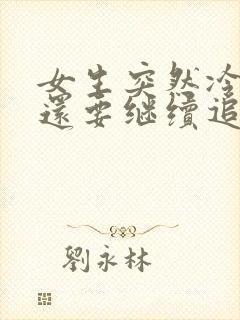 女生突然冷
還要继續追
劉永林